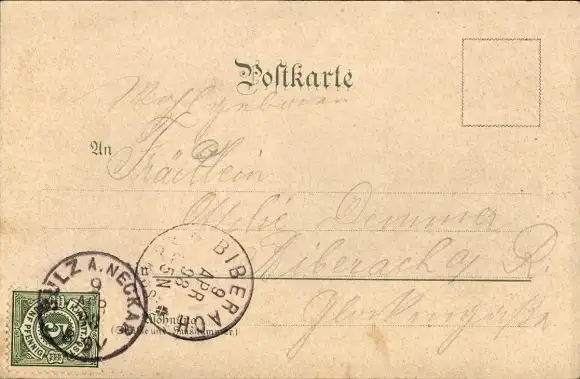 Postkarte
Wohlgeboren
An Fräulein
Otilie Demmer
Biberach a. R.
SULZ A. NECKAR
BIBERACH
9 APR 98
5 N
Wohnung
(Straße und Hausnummer.)
5
PFENNIG